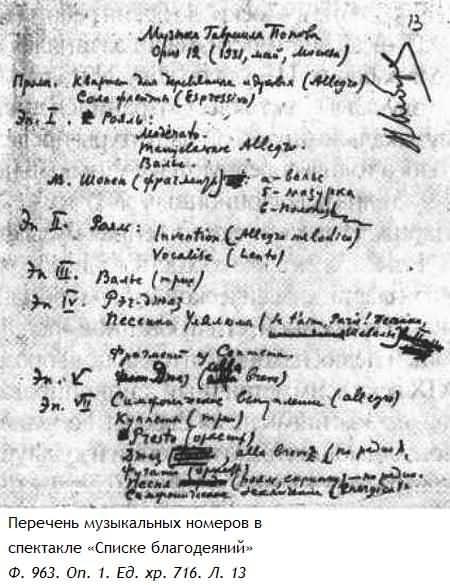 13
Музыка Гавриила Попова
Opus 12 (1931, май, Москва)
Пролог. Квартет для деревянных и дуэля (Allegro)
Соло флейты (Espressivo)
Эп. I. Рояль:
Moderato.
Танцевальное Allegro.
Вальс.
М. Шопен (фрагменты): а – вальс
б – мазурка
в – полонез
Эп II. Рояль:
Invention (Allegro melodico)
Vocalise (Lento)
Эп III. Вальс (трио)
Эп IV Рэг-джаз
Песенка Улялюма (Je t'aim, Paris! Песенка Шевалье)
Фрагмент из Септета.
Эп. V Джаз (alla breve)
Эп. VII Симфоническое вступление (allegro)
Куплеты (трио)
Presto (оркестр)
Джаз alla breve (по радио),
Фугато (оркестр)
Песня (рояль, скрипка) – по радио.
Симфоническое заключение (Energico)
Перечень музыкальных номеров в
спектакле «Списке благодеяний»
Ф. 963. Оп. 1. Ед. хр. 716. Л. 13